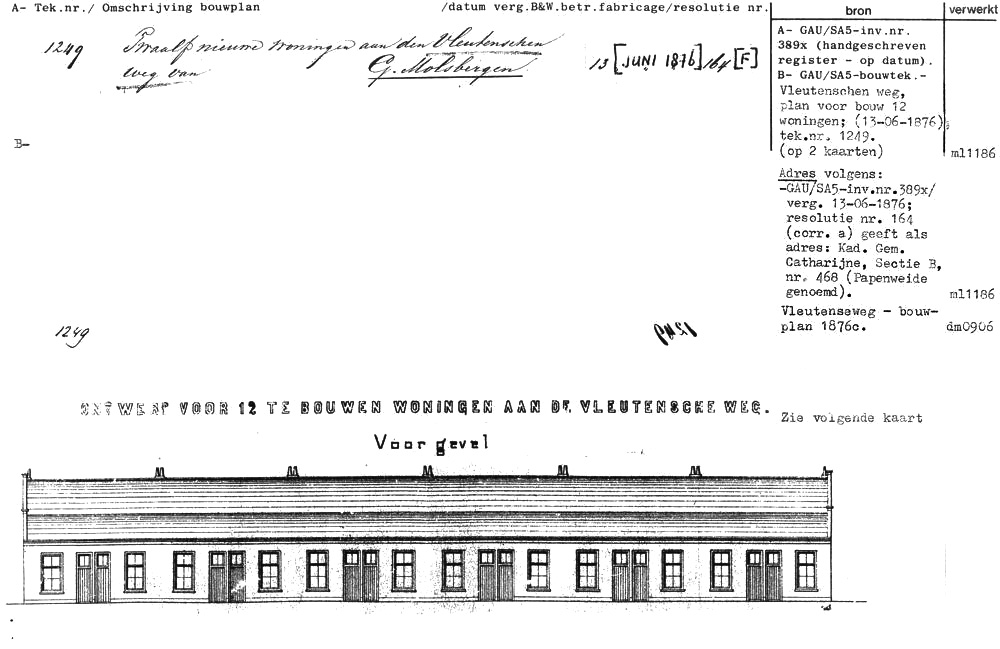 A- Tek.nr./ Omschrijving bouwplan /datum verg.B&W.betr.fabricage/resolutie nr.
bron
verwerkt
1249 Twaalf nieuwe woningen aan den Vleutenschen
weg van G. Molsbergen 13 [JUNI 1876] 164 [F]
B-
A- GAU/SA5-inv.nr.
389x (handgeschreven
register - op datum).
B- GAU/SA5-bouwtek.-
Vleutenschen weg,
plan voor bouw 12
woningen; (13-06-1876);
tek.nr. 1249.
(op 2 kaarten) ml1186
Adres volgens:
-GAU/SA5-inv.nr.389x/
verg. 13-06-1876;
resolutie nr. 164
(corr. a) geeft als
adres: Kad. Gem.
Catharijne, Sectie B,
nr. 468 (Papenweide
genoemd). ml1186
Vleutenseweg - bouw-
plan 1876c. dm0906
1249
ONTWERP VOOR 12 TE BOUWEN WONINGEN AAN DE VLEUTENSCHE WEG.
Zie volgende kaart
Voorgevel